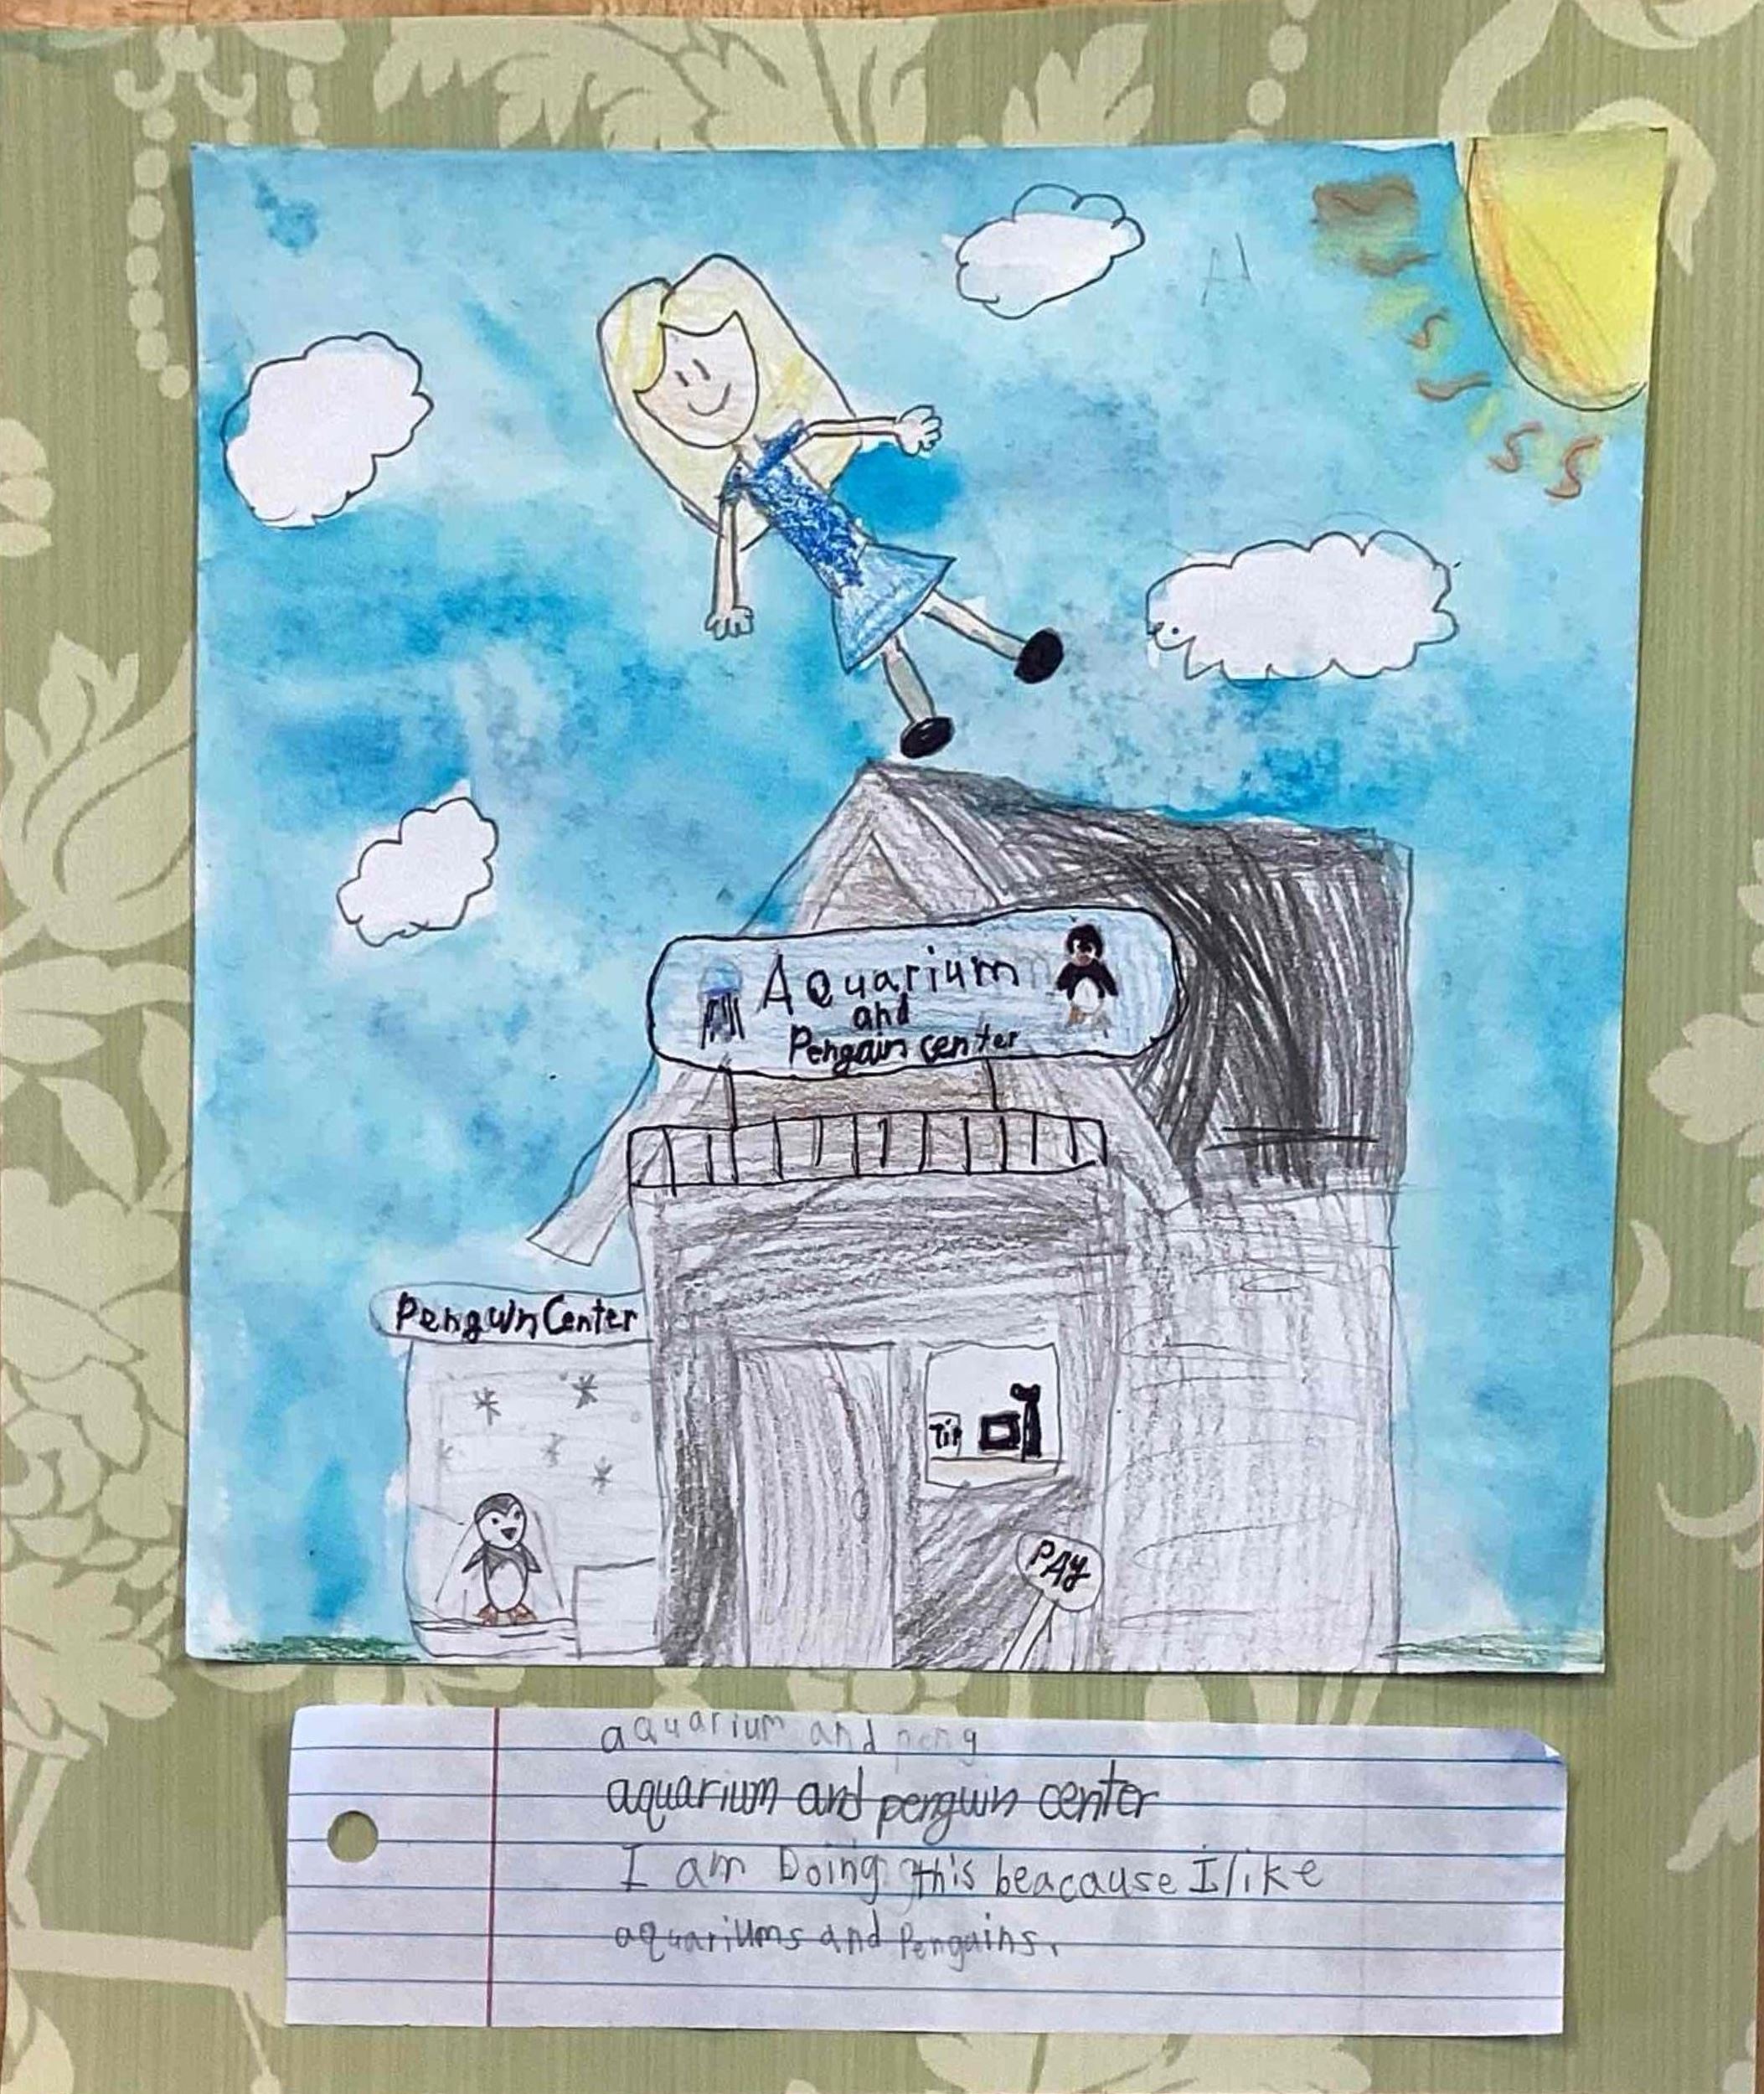 Aquarium
and
Pengain center
Penguin Center
Tip
PAY
aquarium and peng
aquarium and penguin center
I am Doing this beacause I like
aquariums and Penguins.